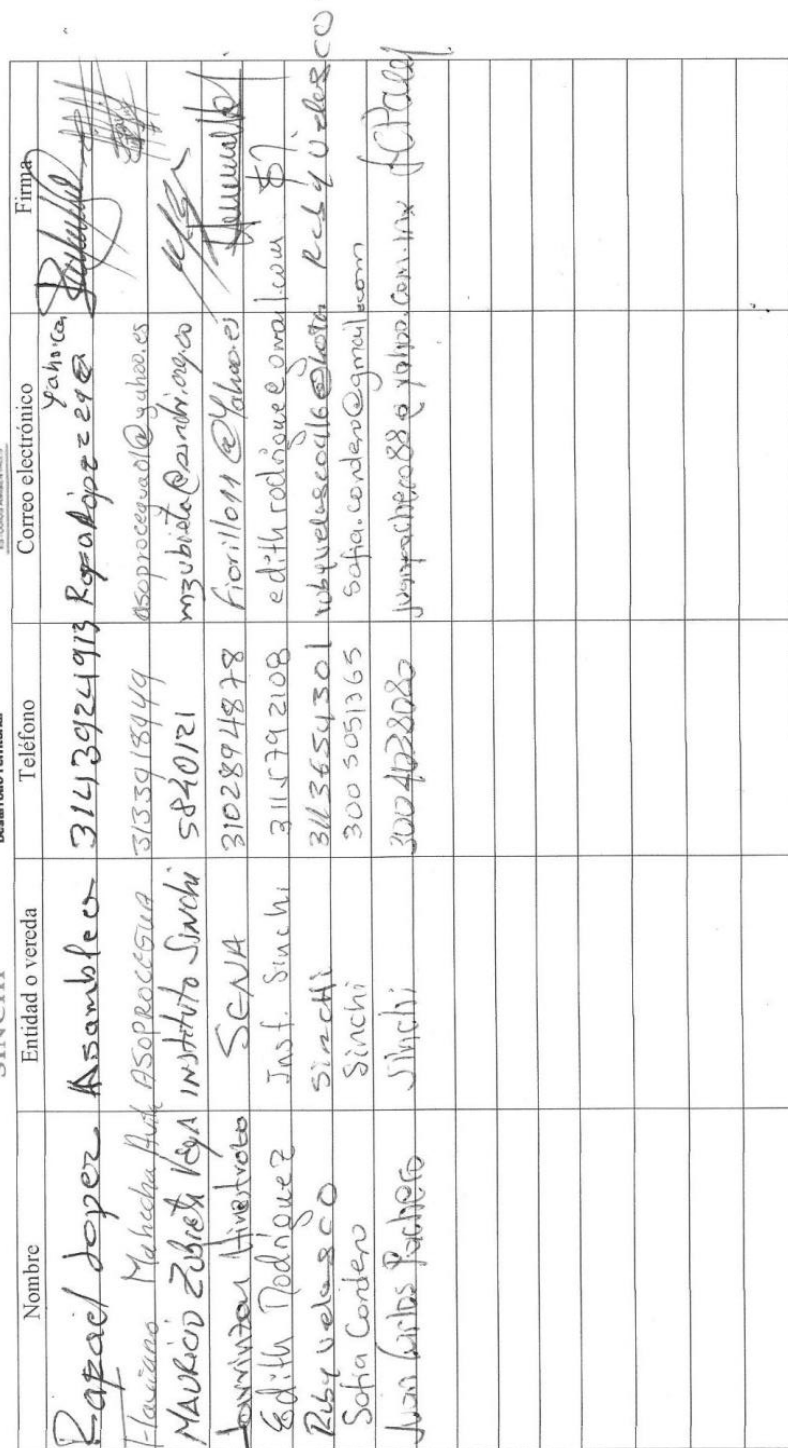 SINCHI
Desarrollo Territorial
Nombre Entidad o vereda Teléfono Correo electrónico Firma
Rafael Lopez Asamblea 3143924913 yahoo.com
Mahecha ASOPROCEGUA 3133918449 asoprocegua01@yahoo.es
MAURICIO Zubieta Vega Instituto Sinchi 5840121 mzubieta@sinchi.org.co
Hinestroza SENA 3102894878 Fiorillo11@Yahoo.es
Edith Rodriguez Inst. Sinchi 3115792108
Ruby Velasco Sinchi 3113654301 Ruby Velasco
Sofia Cordero Sinchi 300 5051365 sofia.cordero@gmail.com
Juan Carlos Pacheco Sinchi 3004028080 juanpacheco88@yahoo.com.mx